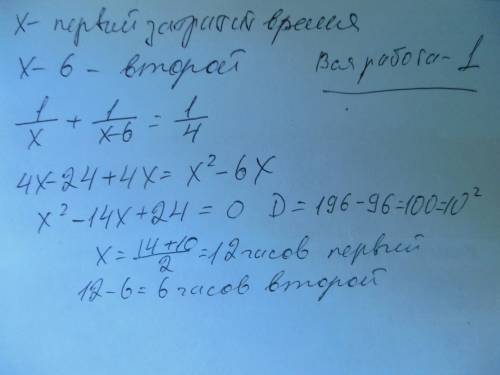 x - первый затратит время
x - 6 - второй
Вся работа - 1
1/x + 1/(x-6) = 1/4
4x - 24 + 4x = x² - 6x
x² - 14x + 24 = 0 D = 196 - 96 = 100 = 10²
x = (14 + 10)/2 = 12 часов первый
12 - 6 = 6 часов второй